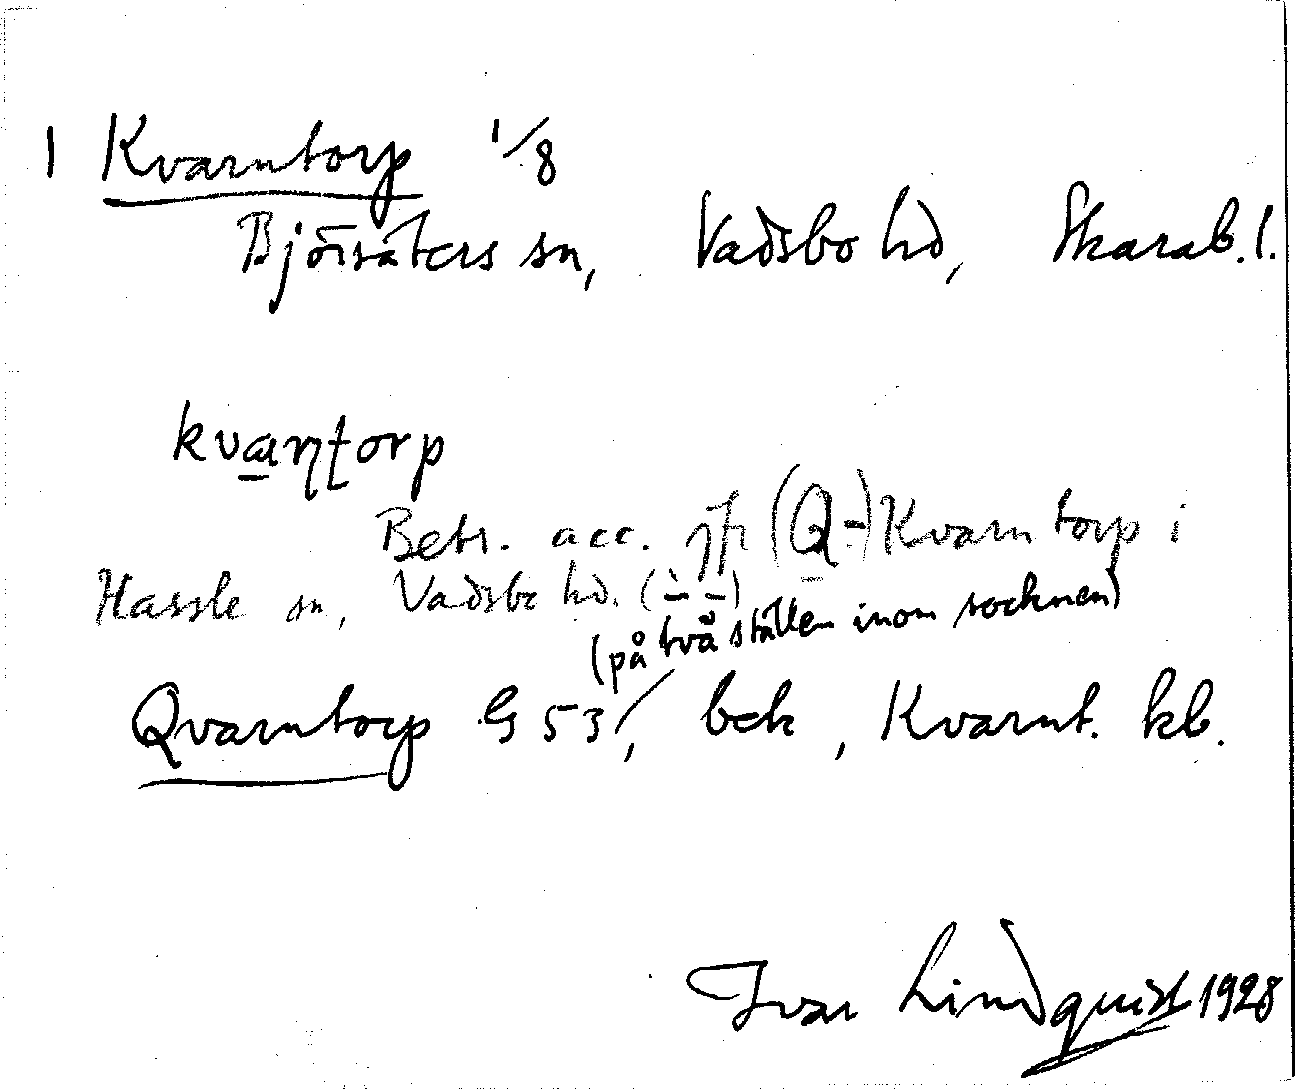 1 Kvarntorp 1/8
Björsäters sn, Vadsbo hd, Skarab. l.
kvaɳʈorp
Betr. acc. jfr (Q-) Kvarntorp i
Hassle sn, Vadsbo hd. (∸ –)
(på två ställen inom socknen)
Qvarntorp G 53/, bek, Kvarnt. kb.
Ivar Lindquist 1928